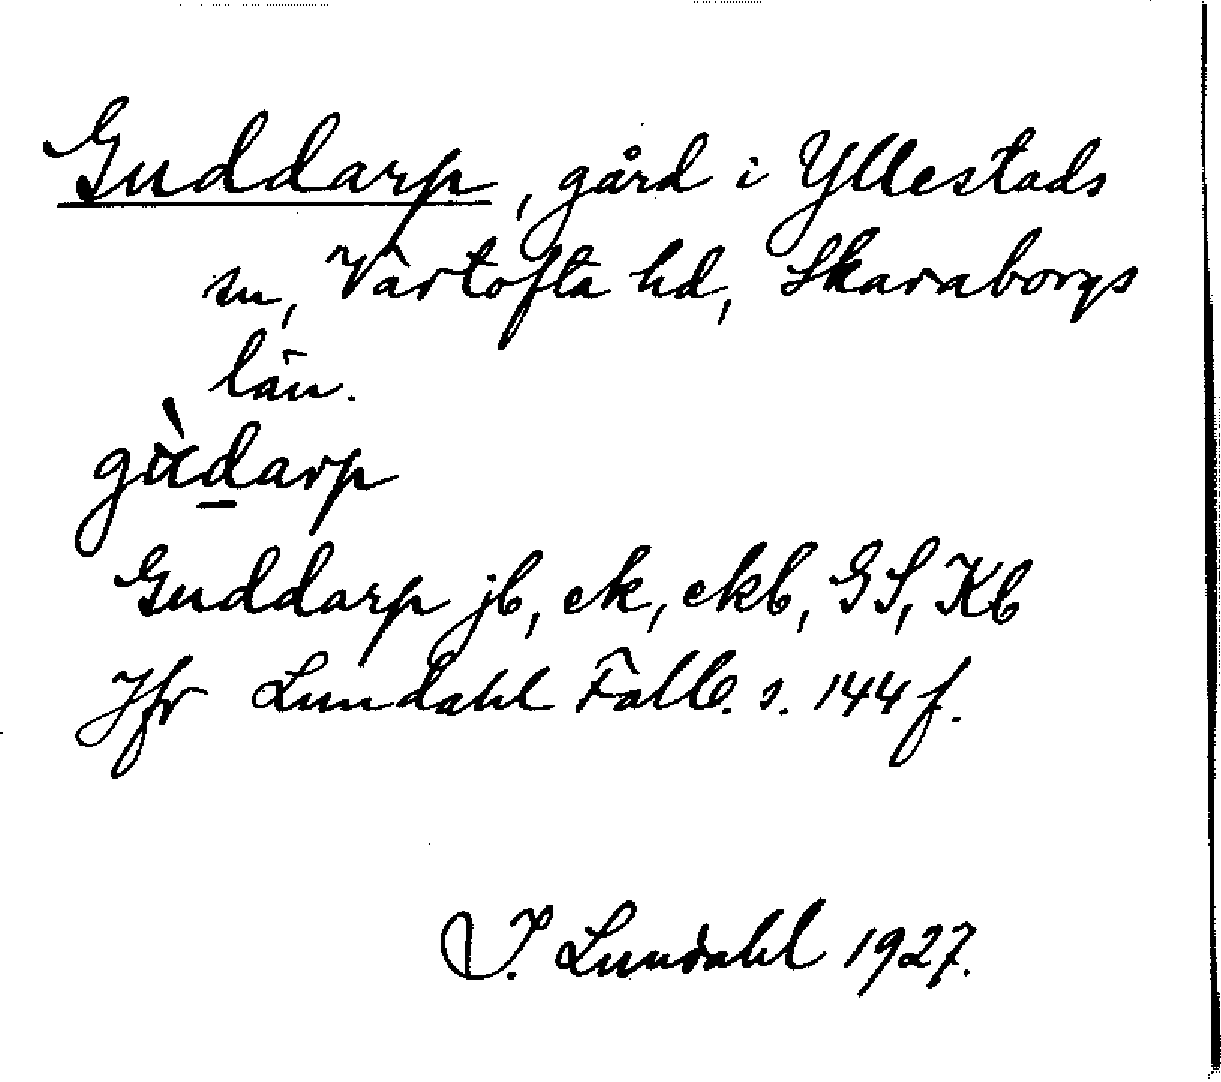 Guddarp, gård i Yllestads
sn, Vartofta hd, Skaraborgs
län.
gùdarp
Guddarp jb, ek, ekb, GS, Kb
Jfr Lundahl Falb. s. 144 f.
I. Lundahl 1927.